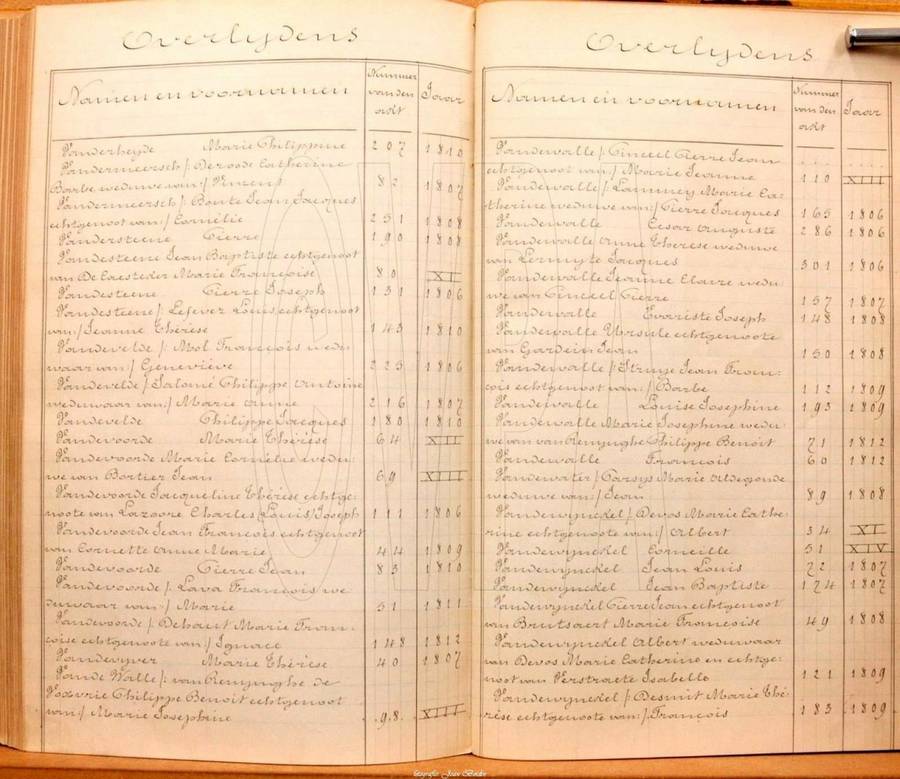 Overlydens
Namen en voornamen
Nummer van den akt
Jaar
Vanderheyde Marie Philippine 207 1810
Vandermeersch /: Deroode Catherine
Barbe weduwe van:/ Vincent 82 1807
Vandermeersch /: Bonte Jean Jacques
echtgenoot van:/ Cornélie 231 1808
Vandersteene Pierre 190 1808
Vandesteene Jean Baptiste echtgenoot
van De Caesteker Marie Françoise 80 XI
Vandesteene Pierre Joseph 131 1806
Vandesteene /: Lefever Louis echtgenoot
van:/ Jeanne Thérèse 143 1810
Vandevelde /: Mol François wedu
waar van:/ Geneviève 223 1806
Vandevelde /: Salomé Philippe Antoine
weduwaar van:/ Marie Anne 216 1807
Vandevelde Philippe Jacques 180 1810
Vandevoorde Marie Thérèse 64 XII
Vandevoorde Marie Cornélie wedu
we van Bortier Jean 69 XIII
Vandevoorde Jacqueline Thérèse echtge:
noote van Lazoore Charles Louis Joseph 111 1806
Vandevoorde Jean François echtgenoot
van Cornette Anne Marie 44 1809
Vandevoorde Pierre Jean 83 1810
Vandevoorde /: Lava François we
duwaar van:/ Marie 31 1811
Vandevoorde /: Dehaut Marie Fran:
çoise echtgenoote van:/ Ignace 148 1812
Vandevyver Marie Thérèse 40 1807
Vande Walle /: van Renynghe de
Voxvrie Philippe Benoit echtgenoot
van:/ Marie Josephine .98. XIII
Overlydens
Namen en voornamen
Nummer van den akt
Jaar
Vandewalle /: Pinceel Pierre Jean
echtgenoot van:/ Marie Jeanne 110 XIII
Vandewalle /: Lammey Marie Ca:
therine weduwe van:/ Pierre Jacques 165 1806
Vandewalle Cesar Auguste 286 1806
Vandewalle Anne Therese weduwe
van Lermyte Jacques 301 1806
Vandewalle Jeanne Claire wedu
we van Pinceel Pierre 157 1807
Vandewalle Evariste Joseph 148 1808
Vandewalle Ursule echtgenoote
van Gardein Jean 150 1808
Vandewalle /: Struye Jean Fran:
çois echtgenoot van:/ Barbe 112 1809
Vandewalle Louise Josephine 193 1809
Vandewalle Marie Josephine wedu:
we van van Renynghe Philippe Benoit 71 1812
Vandewalle François 60 1812
Vandewater /: Parsys Marie Aldegonde
weduwe van:/ Jean 89 1808
Vandewynckel /: Devos Marie Cathe:
rine echtgenoote van:/ Albert 34 XI
Vandewynckel Corneille 51 XIV
Vandewynckel Jean Louis 72 1807
Vandewynckel Jean Baptiste 174 1807
Vandewynckel Pierre Jean echtgenoot
van Brutsaert Marie Françoise 49 1808
Vandewynckel Albert weduwaar
van Devos Marie Catherine en echtge:
noot van Verstraete Isabelle 121 1809
Vandewynckel /: Desmit Marie Thé:
rèse echtgenoote van:/ François 183 1809